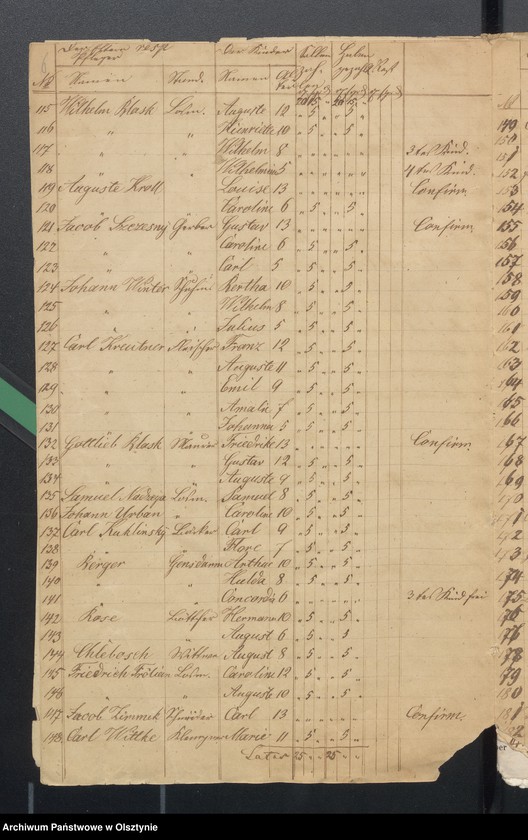 Der Eltern resp.
Pfleger
Der Kinder
Sollen
Haben
No
Namen
Stand
Namen
Alter
gezahlt
Rest
115 Wilhelm Blask Losm. Auguste 12 5 5
116 " " Henriette 10 5 5
117 " " Wilhelm 8 3tes Kind.
118 " " Wilhelmine 5 4tes Kind.
119 Auguste Kroll Louise 13 Confirm
120 Caroline 6 5 5
121 Jacob Szczesny Gerber Gustav 13 Confirm
122 " " Caroline 6 5 5
123 " " Carl 5 5 5
124 Johann Winter Schuhm. Bertha 10 5 5
125 " " Wilhelm 8 5 5
126 " " Julius 5 5 5
127 Carl Kreutner Fleischer Franz 12 5 5
128 " " Auguste 11 5 5
129 " " Emil 9 5 5
130 " " Amalie 7 5 5
131 " " Johanna 5 5 5
132 Gottlieb Blask Maurer Friedrike 13 Confirm
133 " " Gustav 12 5 5
134 " " Auguste 9 5 5
135 Samuel Losm. Samuel 8 5 5
136 Johann Urban " Caroline 10 5 5
137 Carl Kuklinsky Carl 9 5 5
138 " " Flore 7 5 5
139 Kerger Gensdarm Arthur 10 5 5
140 " " Hulda 8 5 5
141 Concordia 6 3tes Kind frei
142 Rose Böttcher Hermann 10 5 5
143 August 6 5 5
144 Chlebosch Wittwe August 8 5 5
145 Friedrich Losm. Caroline 12 5 5
146 " " Auguste 10 5 5
147 Jacob Zimmek Schneider Carl 13 Confirm.
148 Carl Wittke Klempner Marie 11 5 5
Later 25 25
149
150
151
152
153
154
155
156
157
158
159
160
161
162
163
164
165
166
167
168
169
170
171
172
173
174
175
176
177
178
179
180
181
182
Archiwum Państwowe w Olsztynie